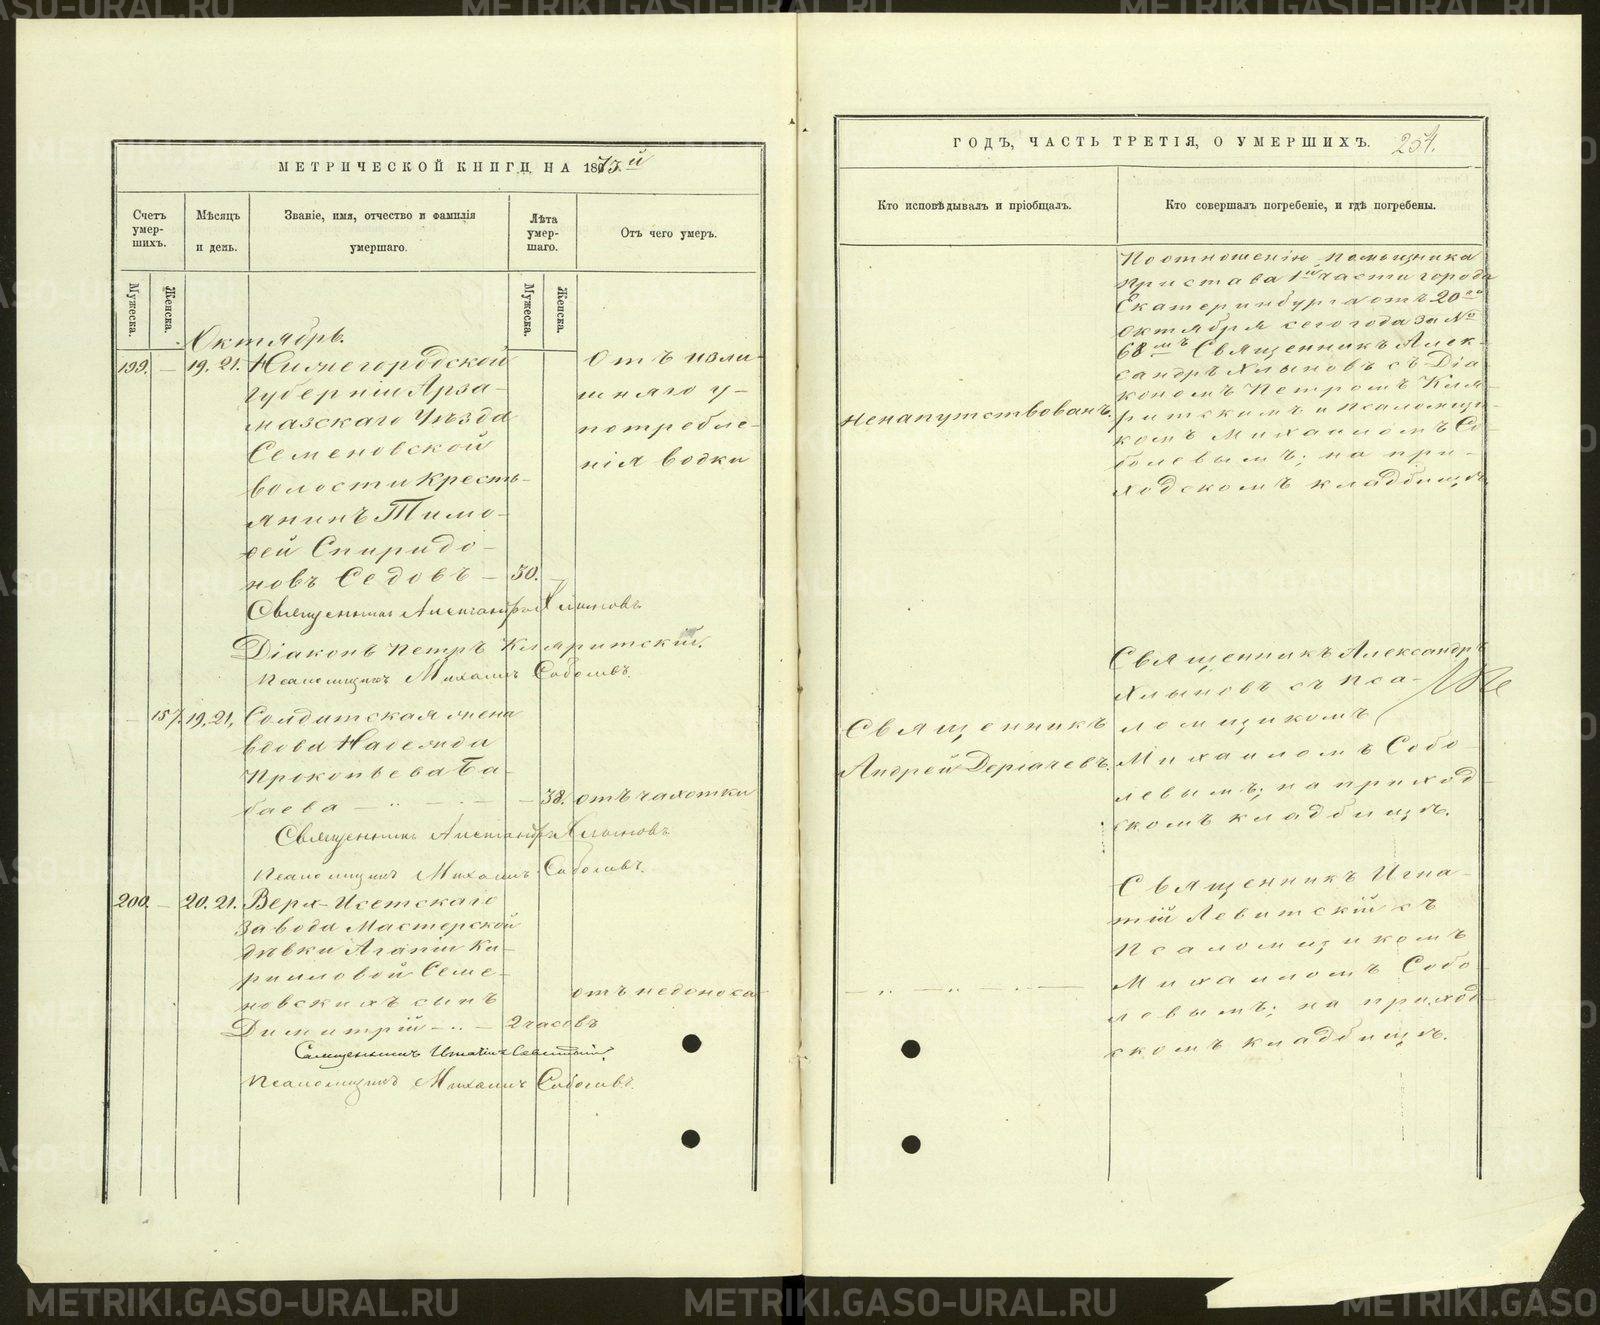 МЕТРИЧЕСКОЙ КНИГИ НА 1873й
Счетъ умер-шихъ.
Мѣсяцъ и день.
Званіе, имя, отчество и фамилія умершаго.
Лѣта умер-шаго.
Отъ чего умеръ.
Мужеска.
Женска.
Мужеска.
Женска.
Октябрь.
199. — 19. 21. Нижегородской
губерніи Арза-
масскаго Уѣзда
Семеновской
волости кресть-
янинъ Тимо-
ѳей Спиридо-
новъ Седовъ — 50. —
Отъ изли-
шняго у-
потребле-
нія водки
Священникъ Александръ Хлыновъ
Діаконъ Петръ Киляритский.
Псаломщикъ Михаилъ Соболевъ.
— 157. 19. 21. Солдатская жена
вдова Надежда
Прокопьева Ба-
баева — " — — 38. отъ чахотки
Священникъ Александръ Хлыновъ
Псаломщикъ Михаилъ Соболевъ.
200. — 20. 21. Верх-Исетскаго
завода Мастерской
дѣвки Агапіи Ки-
рилловой Семе-
новскихъ сынъ
Димитрій — " — 2 часовъ
отъ недоноса
Священникъ Игнатій Левитскій.
Псаломщикъ Михаилъ Соболевъ.
ГОДЪ, ЧАСТЬ ТРЕТІЯ, О УМЕРШИХЪ. 254.
Кто исповѣдывалъ и пріобщалъ.
Кто совершалъ погребеніе, и гдѣ погребены.
Ненапутствованъ.
По отношенію помощника
пристава 1й части города
Екатеринбурга отъ 20го
Октября сего года за №
68мъ Священникъ Алек-
сандръ Хлыновъ съ Діа-
кономъ Петромъ Киля-
ритскимъ и псаломщи-
комъ Михаиломъ Со-
болевымъ; на при-
ходскомъ кладбищѣ
Священникъ
Андрей Дергачевъ.
Священникъ Александръ
Хлыновъ съ Пса-
ломщикомъ
Михаиломъ Собо-
левымъ; на приход-
скомъ кладбищѣ.
— " — " — " —
Священникъ Игна-
тій Левитскій съ
Псаломщикомъ
Михаиломъ Собо-
левымъ; на приход-
скомъ кладбищѣ.
METRIKI.GASO-URAL.RU